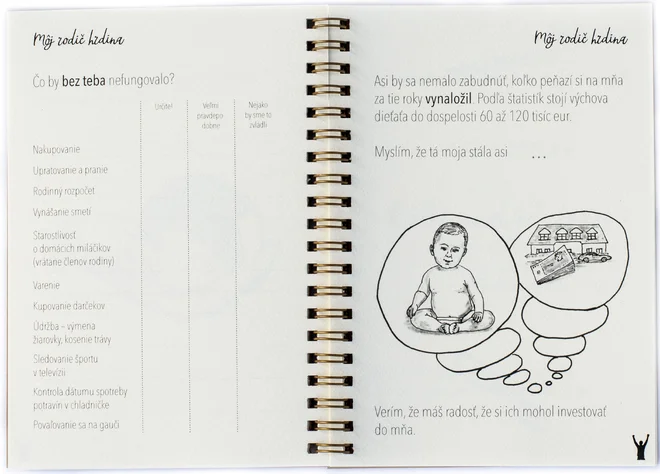 Môj rodič hrdina
Čo by bez teba nefungovalo?
Určite!
Veľmi
pravdepo
dobne
Nejako
by sme to
zvládli
Nakupovanie
Upratovanie a pranie
Rodinný rozpočet
Vynášanie smetí
Starostlivosť
o domácich miláčikov
(vrátane členov rodiny)
Varenie
Kupovanie darčekov
Údržba – výmena
žiarovky, kosenie trávy
Sledovanie športu
v televízii
Kontrola dátumu spotreby
potravín v chladničke
Povaľovanie sa na gauči
Môj rodič hrdina
Asi by sa nemalo zabudnúť, koľko peňazí si na mňa
za tie roky vynaložil. Podľa štatistík stojí výchova
dieťaťa do dospelosti 60 až 120 tisíc eur.
Myslím, že tá moja stála asi ...
Verím, že máš radosť, že si ich mohol investovať
do mňa.